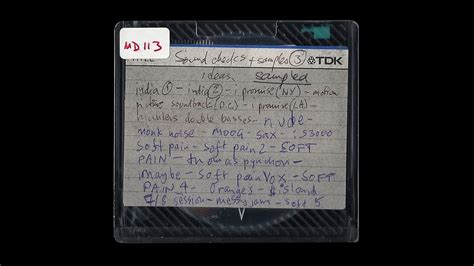 MD 113
TITLE Sound checks + samples ③ TDK
ideas sampled
india ① - india ② - i promise (NY) - motion
picture soundtrack (D.C.) - i promise (LA) -
double basses - nude -
monk noise - MOOG - sax - S3000
soft pain - soft pain 2 - SOFT
PAIN - thomas pynchon -
maybe - soft pain vox - SOFT
PAIN 4 - Oranges - island
session - messy jam - soft 5